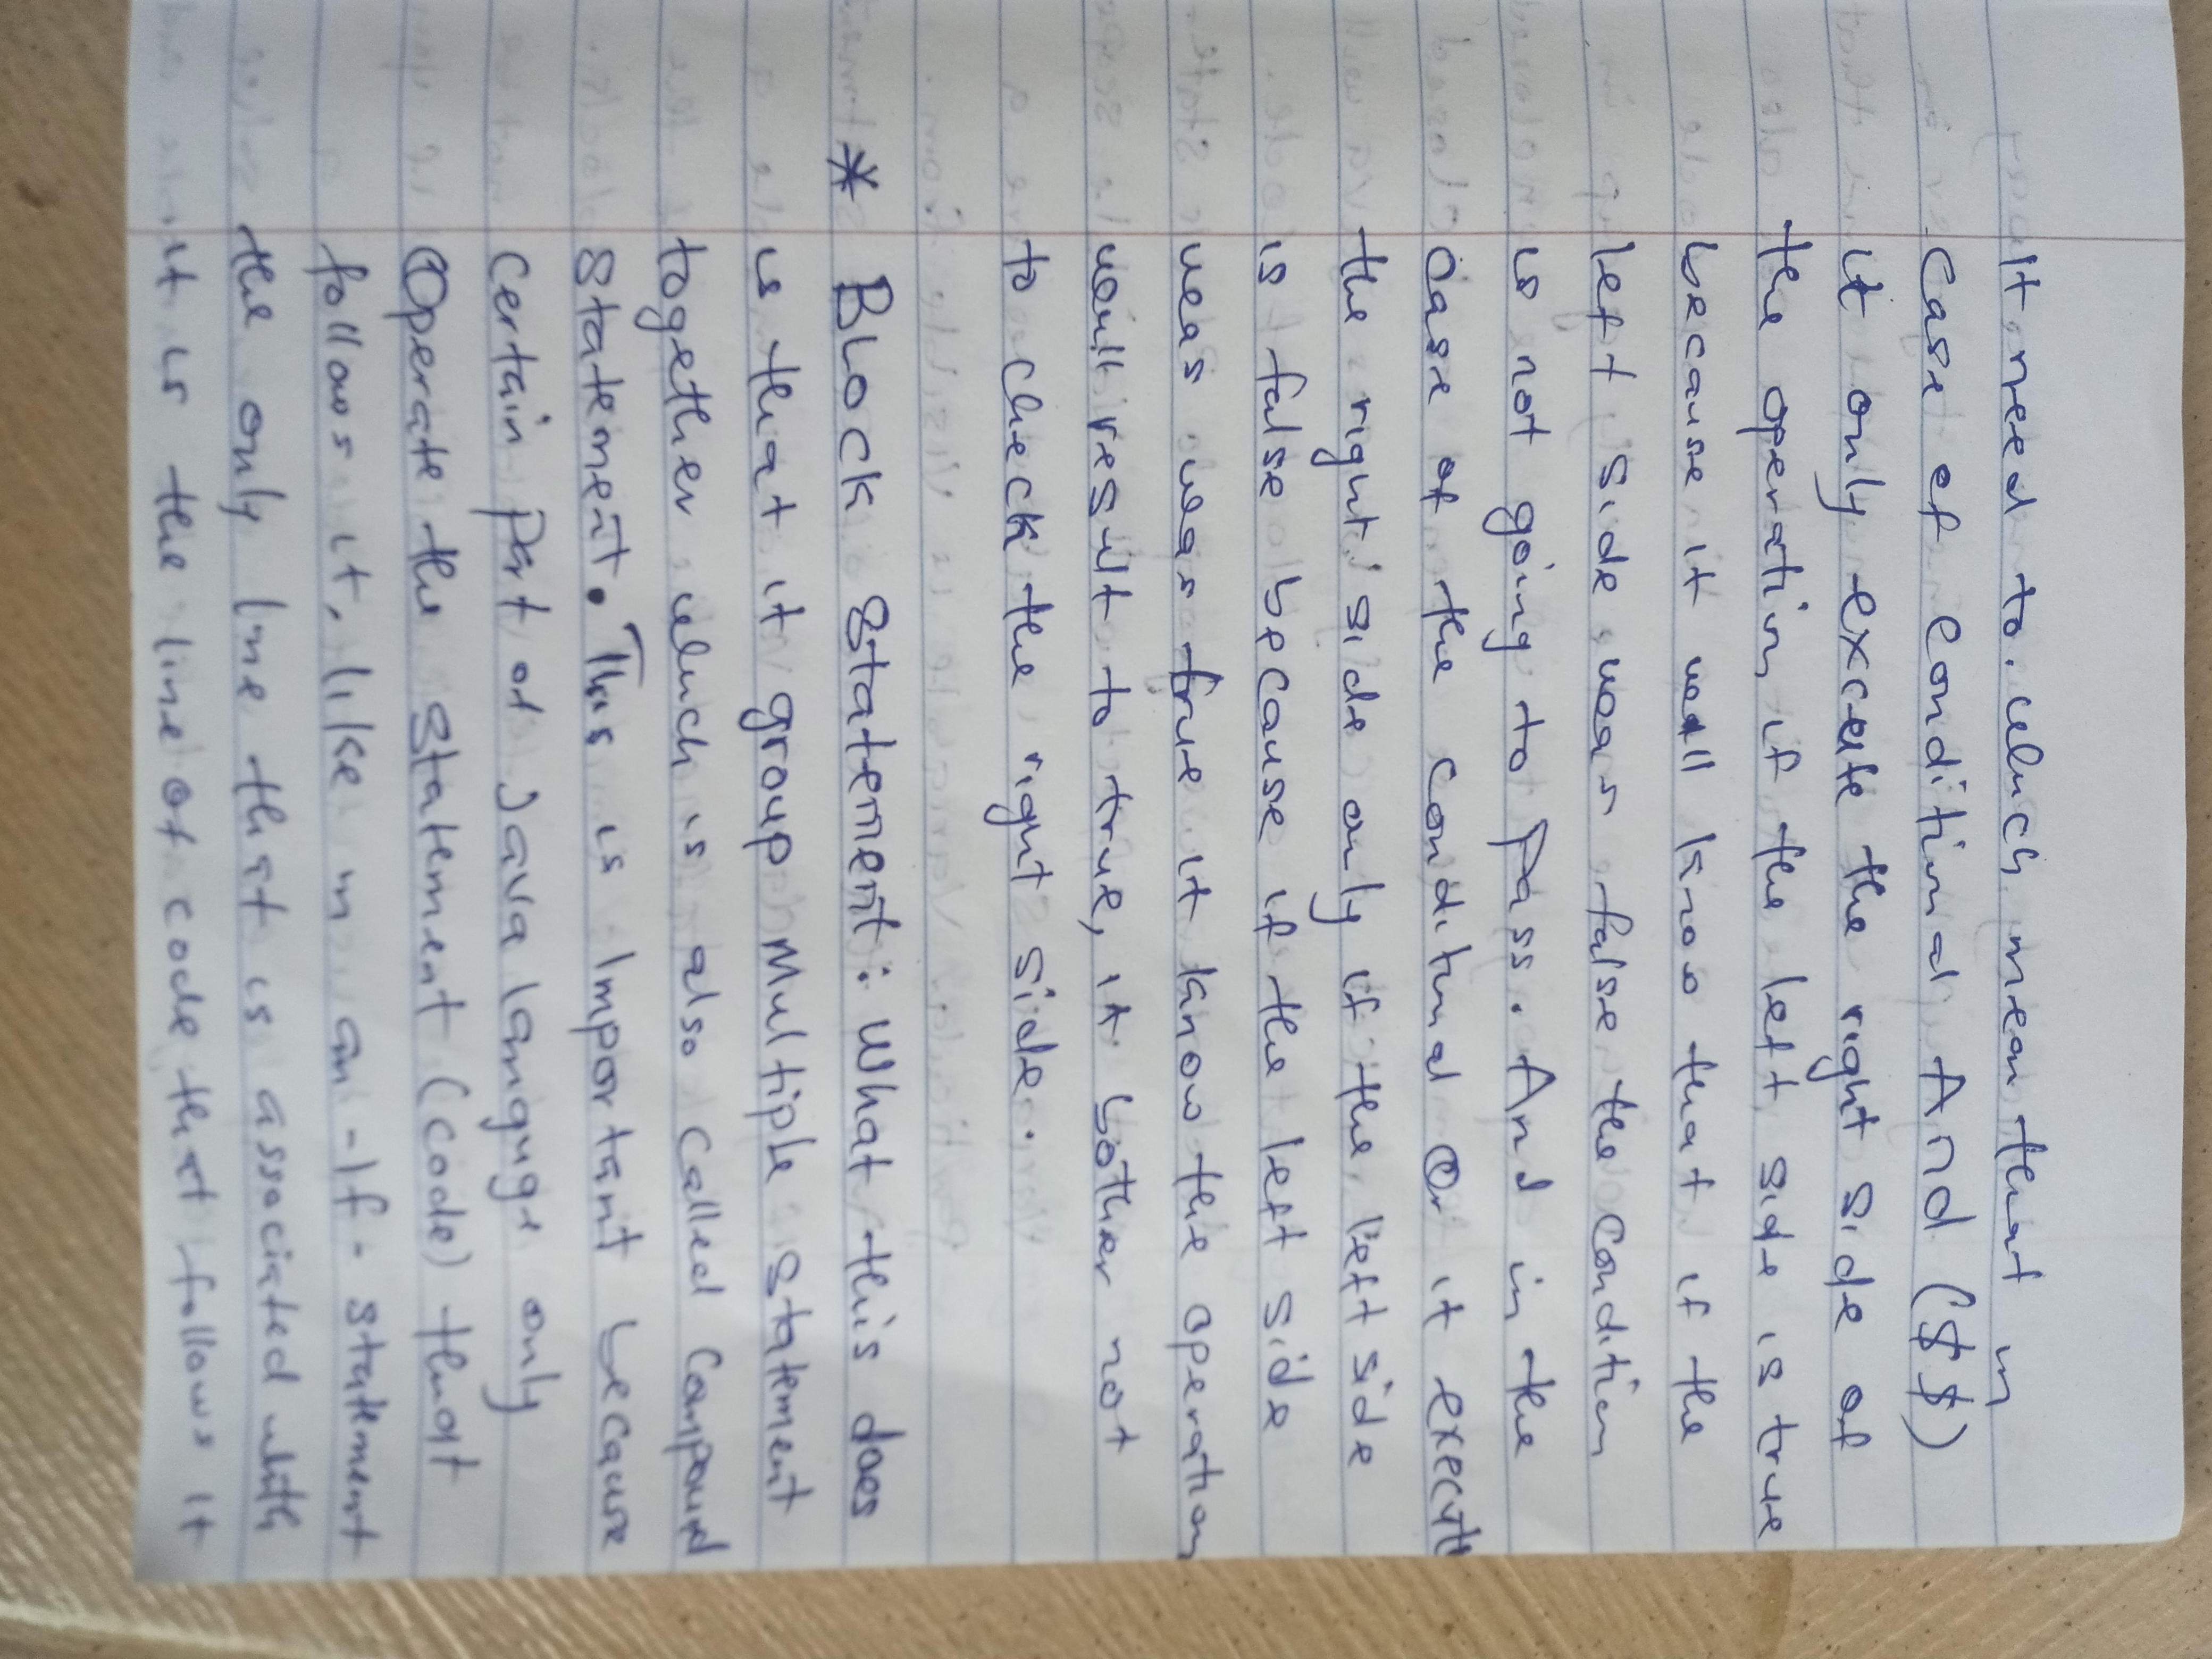 It need to. which mean that in
case of conditional And ($$)
it only excute the right side of
the operation if the left side is true
because it will know that if the
left side was false the condition
is not going to pass. And in the
case of the conditional Or it execute
the right side only if the left side
is false because if the left side
was was true it know the operation
will result to true, it bother not
to check the right side.
* BLock Statement: What this does
is that it group Multiple statement
together which is also called Compound
Statement. This is important because
certain part of Java languge only
Operate the statement (code) that
follows it. like in an -If- statement
the only line that is associated with
it is the line of code that follows it